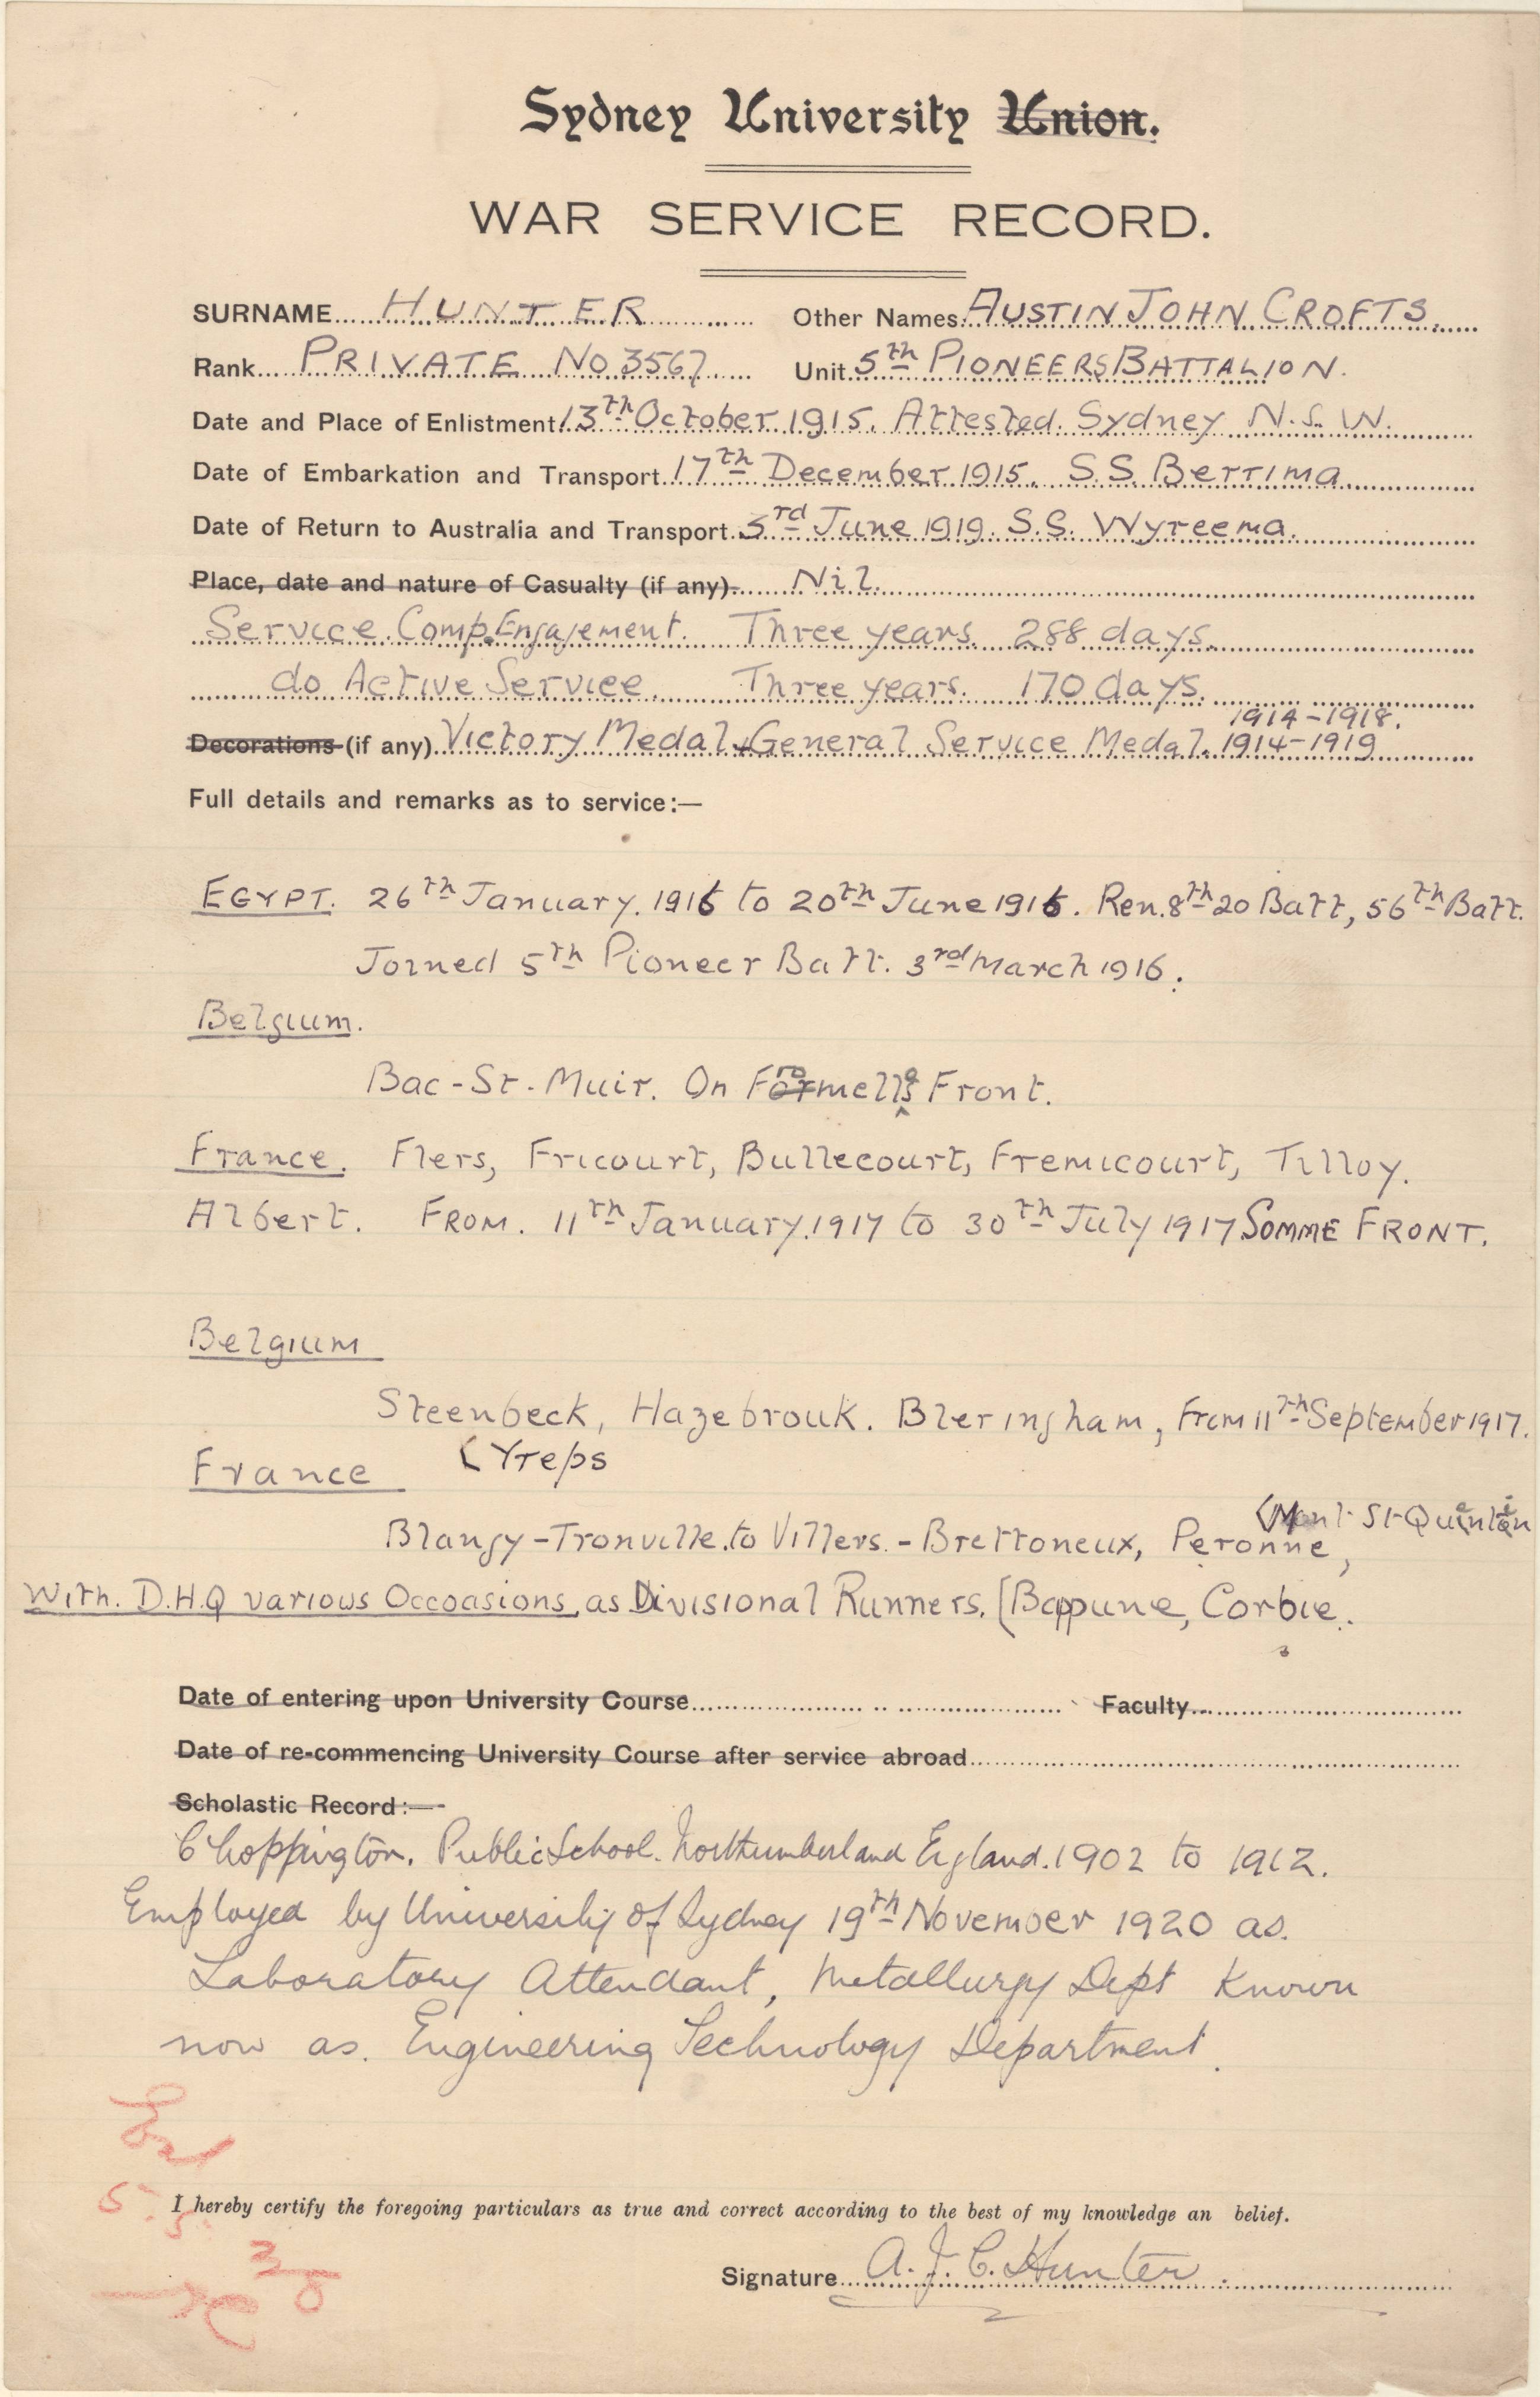 Sydney University Union.
WAR SERVICE RECORD.
SURNAME HUNTER Other Names AUSTIN JOHN CROFTS.
Rank PRIVATE NO 3567 Unit 5th PIONEERS BATTALION.
Date and Place of Enlistment 13th October 1915. Attested. Sydney N.S.W.
Date of Embarkation and Transport 17th December 1915. S.S. Berrima
Date of Return to Australia and Transport 3rd June 1919. S.S. Wyreema.
Place, date and nature of Casualty (if any) Nil.
Service. Comp. Engagement. Three years. 288 days.
do Active Service. Three years. 170 days.
1914-1918.
Decorations (if any) Victory Medal + General Service Medal. 1914-1919
Full details and remarks as to service:—
EGYPT. 26th January. 1916 to 20th June 1916. Ren. 8th 20 Batt, 56th Batt.
Joined 5th Pioneer Batt. 3rd March 1916.
Belgium.
Bac-St-Muir. On Fromelles Front.
France. Flers, Fricourt, Bullecourt, Fremicourt, Tilloy.
Albert. FROM. 11th January. 1917 to 30th July 1917 SOMME FRONT.
Belgium
Steenbeck, Hazebrouk. Bleringham, From 11th September 1917.
(Yreps
France
(Mont St-Quentin
Blangy-Tronville. to Villers.-Brettoneux, Peronne,
With. D.H.Q various Occoasions, as Divisional Runners. (Bappune, Corbie.
Date of entering upon University Course Faculty
Date of re-commencing University Course after service abroad
Scholastic Record:—
Choppington. Public School. Northumberland England. 1902 to 1912.
Employed by University of Sydney 19th November 1920 as.
Laboratory Attendant, Metallurgy Dept Known
now as. Engineering Technology Department.
I hereby certify the foregoing particulars as true and correct according to the best of my knowledge an belief.
Signature A. J. C. Hunter